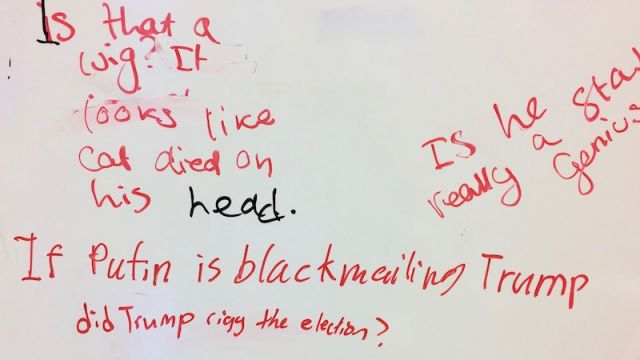 Is that a
wig? It
looks like
cat died on
his head.
Is he a sta
really
Genius
If Putin is blackmailing Trump
did Trump rigg the election?